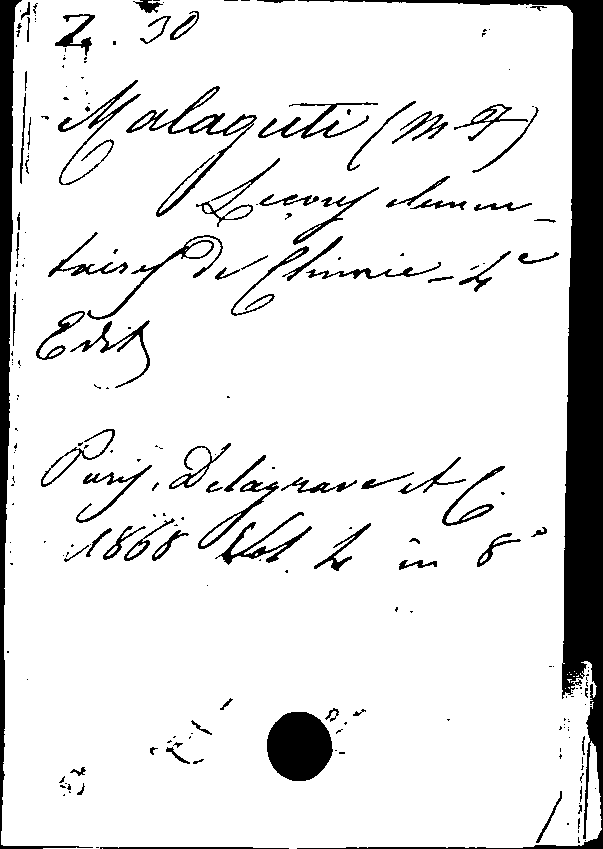 Z. 30
Malaguti (M F)
Leçons elemen-
taires de Chimie - 4e
Edit
Paris, Delagrave et C.
1868 Vol. 4 in 8°